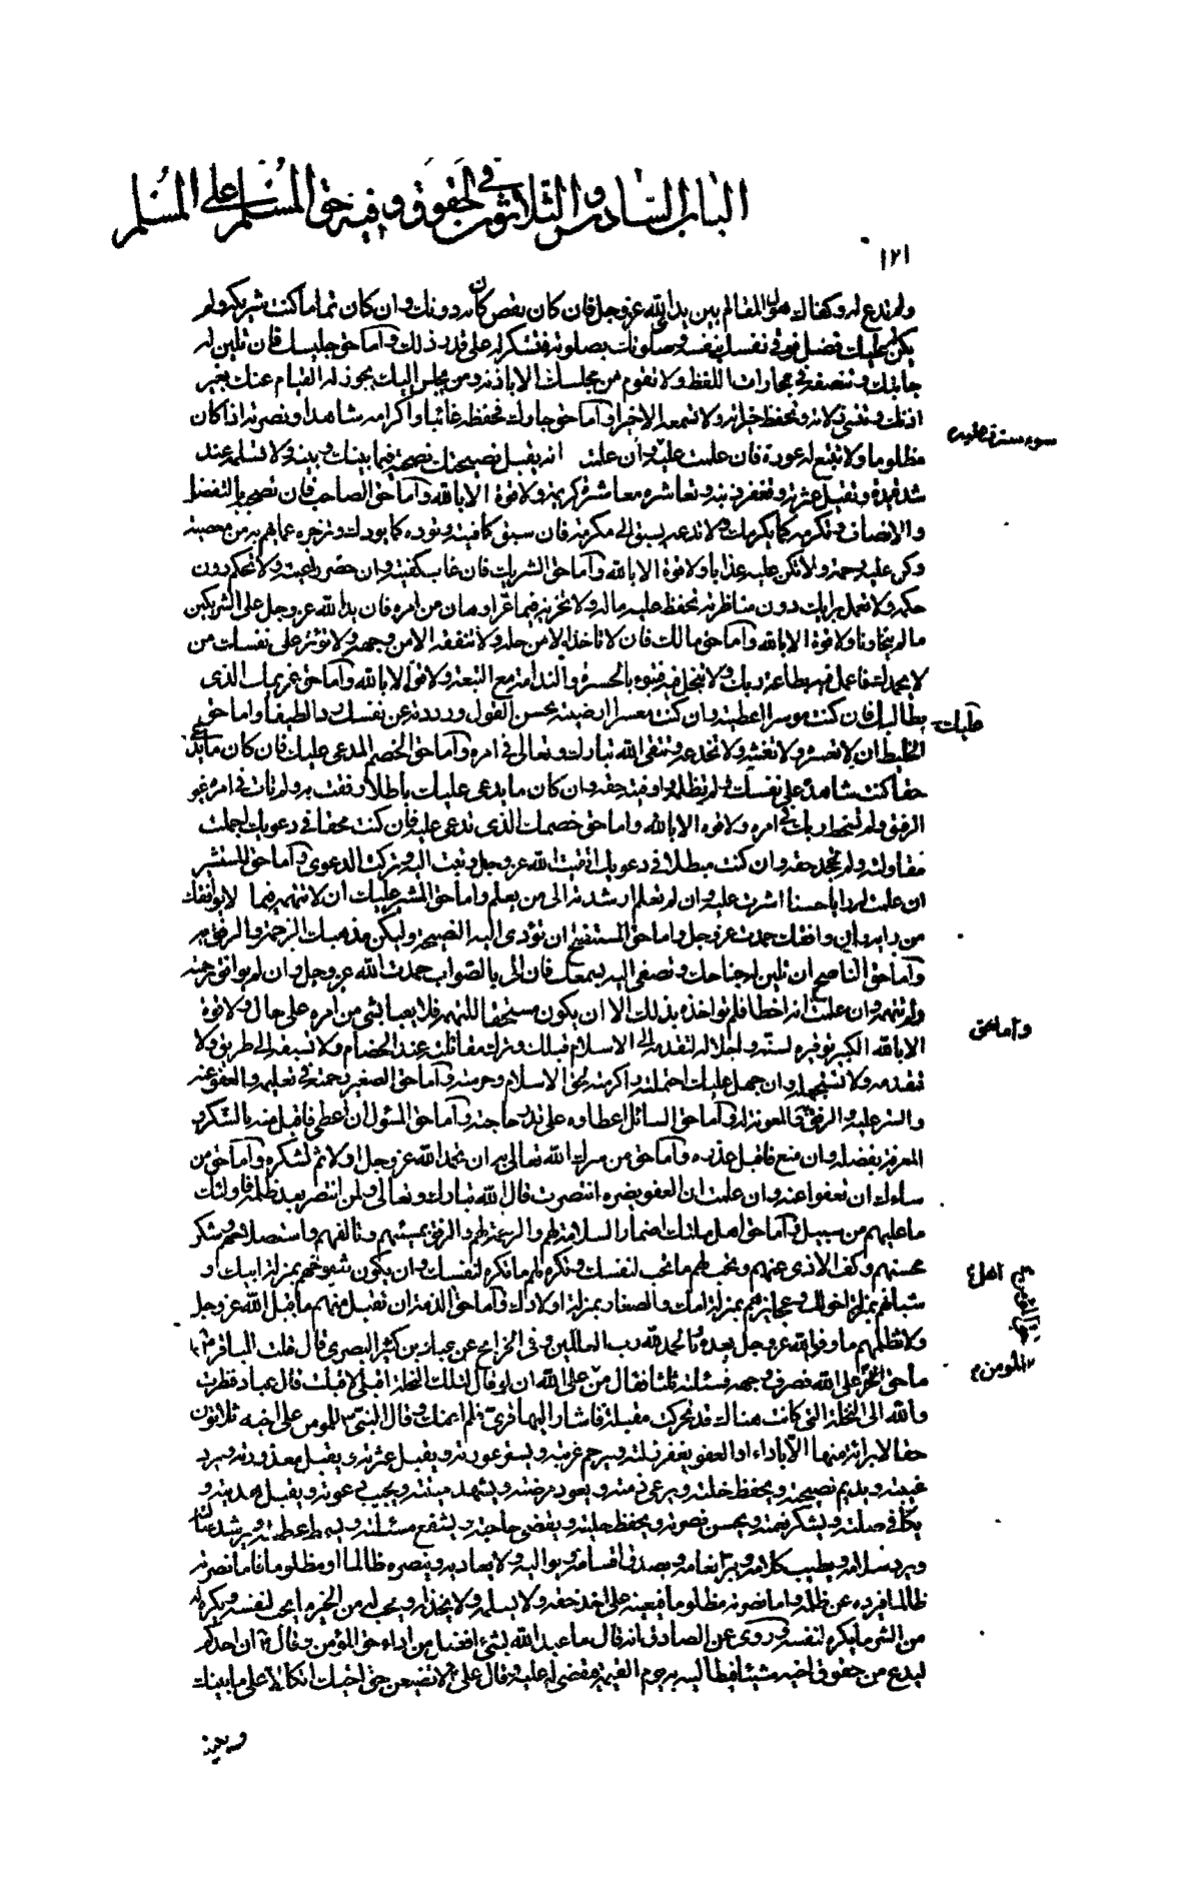 الباب السادس والثلاثون في الحقوق وفيه حق المسلم على المسلم
١٢١
ولم تدع له وكفاك هول المقام بين يدي الله عز وجل فان كان نقص كان به دونك وان كان تماما كنت شريكه ولم
يكن له عليك فضل فوقى نفسك بنفسه وصلوتك بصلوته فتشكر له على قدر ذلك وأما حق جليسك فان تلين له
جانبك وتنصفه في مجاراة اللفظ ولا تقوم من مجلسك الا باذنه ومن يجلس اليك يجوز له القيام عنك بغير
اذنك وتنسى زلاته وتحفظ خيراته ولا تسمعه الا خيرا وأما حق جارك فحفظه غائبا واكرامه شاهدا ونصرته اذا كان
مظلوما ولا تتبع له عورة فان علمت عليه وان علمت انه يقبل نصيحتك نصحته فيما بينك وبينه ولا تسلمه عند
شديدة وتقيل عثرته وتغفر ذنبه وتعاشره معاشرة كريمة ولا قوة الا بالله وأما حق الصاحب فان تصحبه بالتفضل
والانصاف وتكرمه كما يكرمك ولا تدعه يسبق الى مكرمة فان سبق كافيته وتوده كما يودك وتزجره عما يهم به من معصية
وكن عليه رحمة ولا تكن عليه عذابا ولا قوة الا بالله وأما حق الشريك فان غاب كفيته وان حضر رعيته ولا تحكم دون
حكمه ولا تعمل برايك دون مناظرته تحفظ عليه ماله ولا تخونه فيما عز او هان من امره فان يد الله عز وجل على الشريكين
ما لم يتخاونا ولا قوة الا بالله وأما حق مالك فان لا تاخذه الا من حله ولا تنفقه الا من وجهه ولا تؤثر على نفسك من
لا يحمدك فاعمل فيه بطاعة ربك ولا تبخل فيه فتبوء بالحسرة والندامة مع التبعة ولا قوة الا بالله وأما حق غريمك الذى
يطالبك فان كنت موسرا اعطيته وان كنت معسرا ارضيته بحسن القول ورددته عن نفسك ردا لطيفا واما حق
الخليط ان لا تغره ولا تغشه ولا تخدعه وتتقى الله تبارك وتعالى في امره وأما حق الخصم المدعى عليك فان كان ما يدعى
حقا كنت شاهده على نفسك ولم تظلمه واوفيته حقه وان كان ما يدعى عليك باطلا رفقت به ولم تات في امره غير
الرفق ولم تسخط ربك في امره ولا قوة الا بالله واما حق خصمك الذى تدعى عليه فان كنت محقا في دعويك اجملت
مقاولته ولم تجحد حقه وان كنت مبطلا في دعويك اتقيت الله عز وجل وتبت اليه وتركت الدعوى وأما حق المستشير
ان علمت له رايا حسنا اشرت عليه وان لم تعلم ارشدته الى من يعلم واما حق المشير عليك ان لا تتهمه فيما لا يوافقك
من رايه وان وافقك حمدت عز وجل واما حق المستنصح ان تؤدى اليه النصيحة وليكن مذهبك الرحمة والرفق به
وأما حق الناصح ان تلين له جناحك وتصغى اليه بسمعك فان اتى بالصواب حمدت الله عز وجل وان لم يوافق رحمته
ولم تتهمه وان علمت انه اخطا فلم تواخذه بذلك الا ان يكون مستحقا للتهمة فلا يعبا بشئ من امره على حال ولا قوة
الا بالله الكبير توقيره لسنه واجلاله لتقدمه الى الاسلام قبلك وترك مقاتلته عند الخصام ولا تسبقه الى طريق ولا
تتقدمه ولا تستجهله وان جهل عليك احتملته واكرمته لحق الاسلام وحرمته وأما حق الصغير رحمته في تعليمه والعفو عنه
والستر عليه والرفق به والمعونة له وأما حق السائل اعطاوه على قدر حاجته وأما حق المسئول ان اعطى فاقبل منه بالشكر و
المعرفة بفضله وان منع فاقبل عذره وأما حق من سرك الله تعالى به ان تحمد الله عز وجل اولا ثم تشكره وأما حق من
ساءك ان تعفوا عنه وان علمت ان العفو يضره انتصرت قال الله تبارك وتعالى ولمن انتصر بعد ظلمه فاولئك
ما عليهم من سبيل وأما حق اهل ملتك اضمار السلامة لهم والرحمة لهم والرفق بمسيئهم وتالفهم واستصلاحهم وشكر
محسنهم وكف الاذى عنهم وتحب لهم ما تحب لنفسك وتكره لهم ما تكره لنفسك وان يكون شيوخهم بمنزلة ابيك و
شبانهم بمنزلة اخوتك وعجايزهم بمنزلة امك والصغار بمنزلة اولادك وأما حق الذمة ان تقبل منهم ما قبل الله عز وجل
ولا تظلمهم ما وفوا لله عز وجل بعهده والحمد لله رب العالمين وفى الخرايج عن عباد بن كثير البصرى قال قلت للباقر
ما حق المؤمن على الله فصرف وجهه فسئلته ثلثا فقال من حق المؤمن على الله ان لو قال لتلك النخلة اقبلى لاقبلت قال عباد فنظرت
والله الى النخلة التى كانت هناك قد تحركت مقبلة فاشار اليها قرى فلم اعنك وقال النبى للمومن على اخيه ثلاثون
حقا لا براءة منها الا بأداء او العفو يغفر زلته ويرحم غربته ويستر عورته ويقيل عثرته ويقبل معذرته ويرد
غيبته ويديم نصيحته ويحفظ خلته ويرعى ذمته ويعود مرضته ويشهد ميتته ويجيب دعوته ويقبل هديته و
يكافى صلته ويشكر نعمته ويحسن نصرته ويحفظ حليلته ويقضى حاجته ويشفع مسئلته ويسمت عطسته ويرشد ضالته
ويرد سلامه ويطيب كلامه ويبر انعامه ويصدق اقسامه ويواليه ولا يعاديه وينصره ظالما او مظلوما فاما نصرته
ظالما فيرده عن ظلمه واما نصرته مظلوما فيعينه على اخذ حقه ولا يسلمه ولا يخذله ويحب له من الخير ما يحب لنفسه ويكره له
من الشر ما يكره لنفسه وروى عن الصادق انه قال ما عبد الله بشئ افضل من اداء حق المؤمن وقال ان احدكم
ليدع من حقوق اخيه شيئا فيطالبه به يوم القيمة فيقضى له عليه وقال على لا تضيعن حق اخيك اتكالا على ما بينك
وبينه
سوء سترته عليه
عليك
وأما حق
اهل
المؤمن